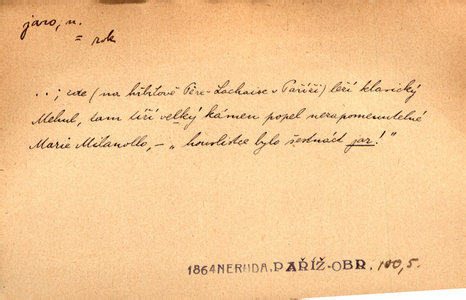 jaro, n.
= rok
..; zde (na hřbitově Père-Lachaise v Paříži) leží klasický
Mehul, tam tíží velký kámen popel nezapomenutelné
Marie Milanollo, – „houslistce bylo šestnáct jar!"
1864 NERUDA, PAŘÍŽ-OBR. 100,5.